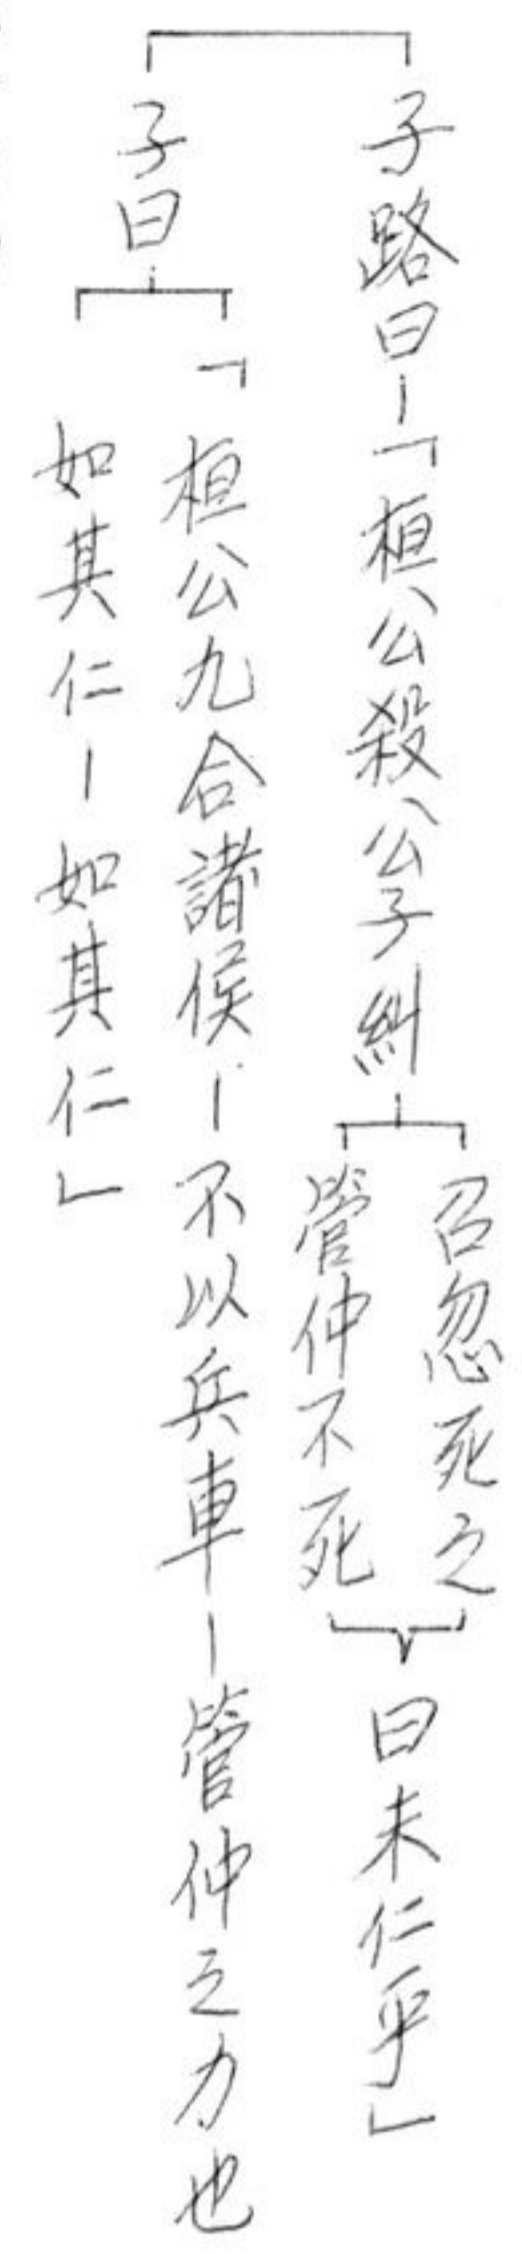 子路曰-「桓公殺公子糾
召忽死之
管仲不死
曰未仁乎」
子曰
「桓公九合諸侯-不以兵車-管仲之力也
如其仁-如其仁」